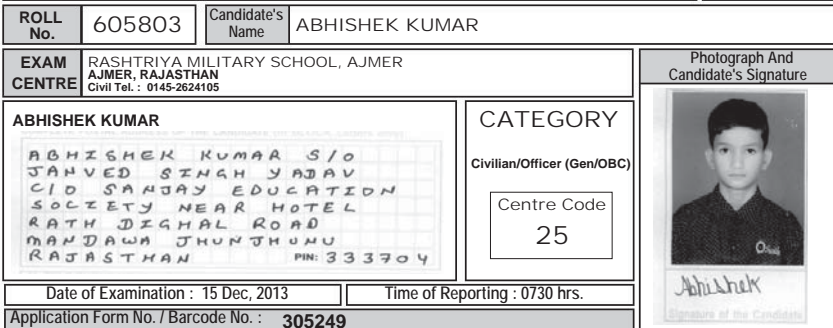 ROLL No. 605803 Candidate's Name ABHISHEK KUMAR
EXAM CENTRE RASHTRIYA MILITARY SCHOOL, AJMER
AJMER, RAJASTHAN
Civil Tel. : 0145-2624105
Photograph And
Candidate's Signature
ABHISHEK KUMAR
ABHISHEK KUMAR S/O
JANVED SINGH YADAV
C/O SANJAY EDUCATION
SOCIETY NEAR HOTEL
RATH DIGHAL ROAD
MANDAWA JHUNJHUNU
RAJASTHAN PIN: 333704
CATEGORY
Civilian/Officer (Gen/OBC)
Centre Code
25
Abhishek
Signature of the Candidate
Date of Examination : 15 Dec, 2013 Time of Reporting : 0730 hrs.
Application Form No. / Barcode No. : 305249